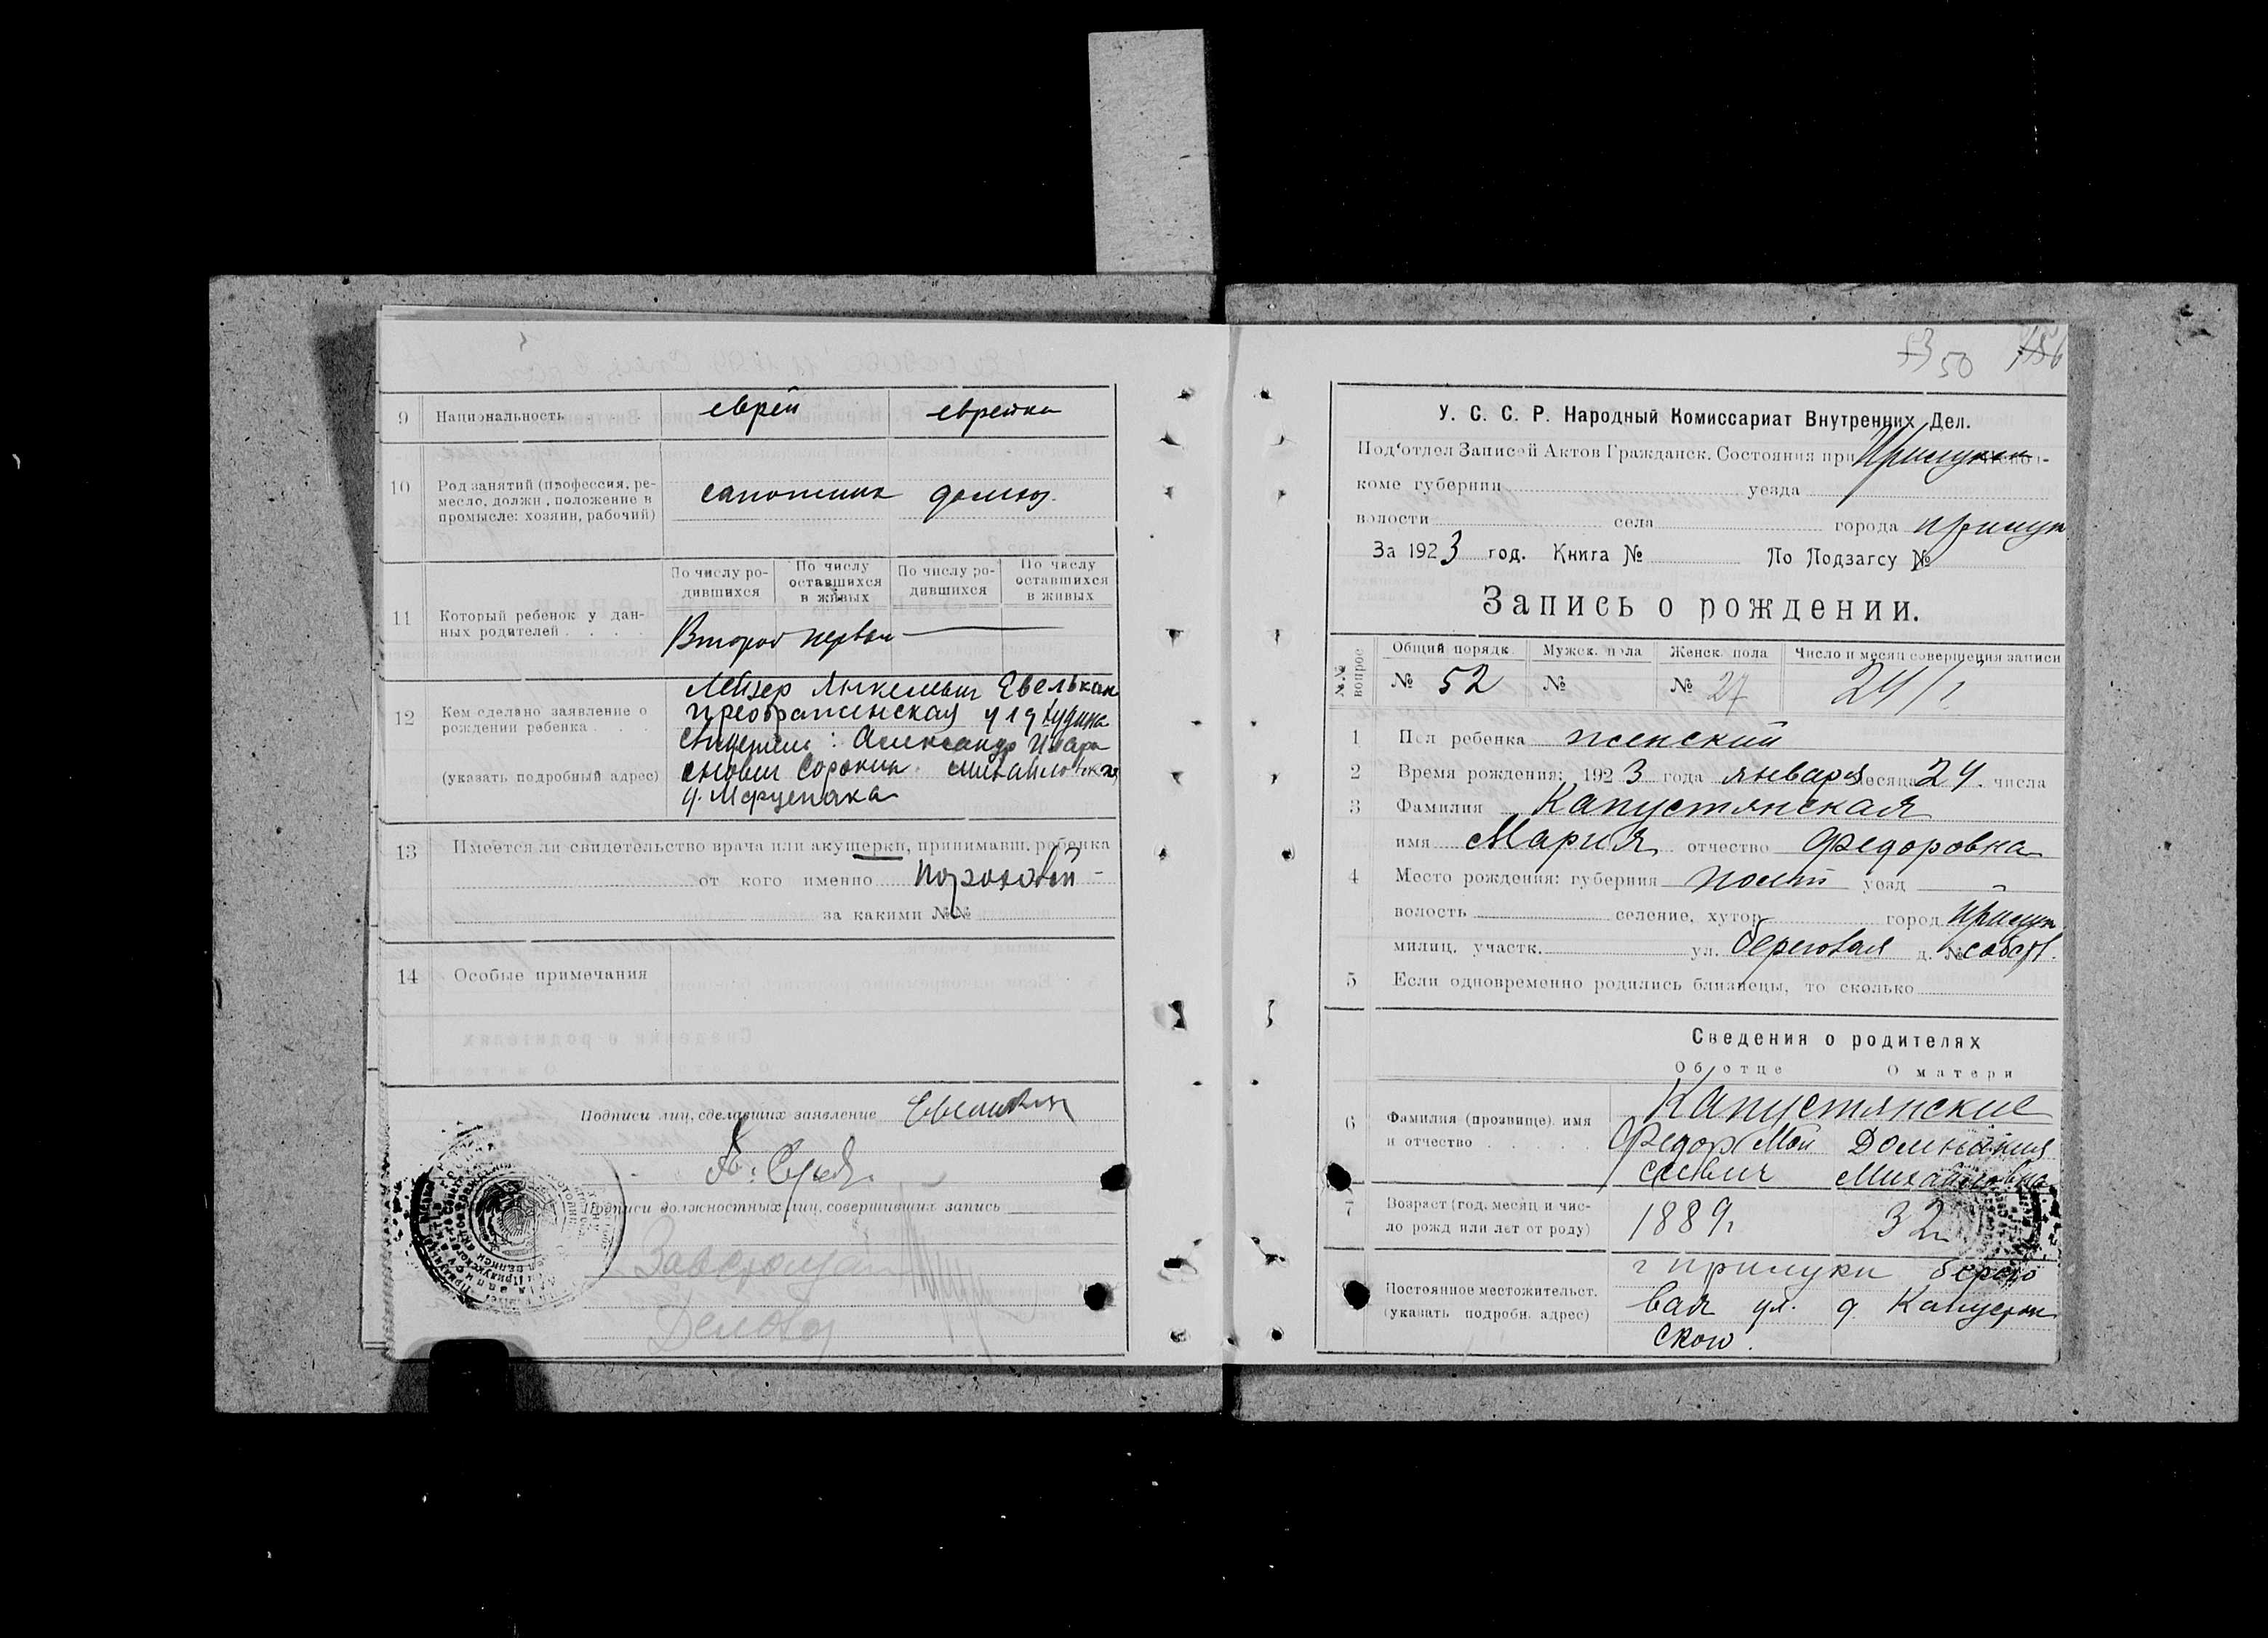 9 Национальность еврей еврейка
10 Род занятий (профессия, ре-
месло, должн., положение в
промысле: хозяин, рабочий)
сапожник домхоз.
По числу ро-
дившихся
По числу
оставшихся
в живых
По числу ро-
дившихся
По числу
оставшихся
в живых
11 Который ребенок у дан-
ных родителей . . . .
Второй первый
12 Кем сделано заявление о
рождении ребенка . . .
(указать подробный адрес)
Лейзер Янкелевич Евелькин
Преображенская
Александр
Сорокин. Михайловская
13 Имеется ли свидетельство врача или акушерки, принимавш. ребенка
от кого именно
за какими №№
14 Особые примечания
Подписи лиц, сделавших заявление
Подписи должностных лиц, совершивших запись
53 50 156
У. С. С. Р. Народный Комиссариат Внутренних Дел.
Под'отдел Записей Актов Гражданск. Состояния при
коме губернии уезда
волости села города Прилук
За 1923 год. Книга № По Подзагсу №
Запись о рождении.
№№ вопрос
Общий порядк. Мужск. пола Женск. пола Число и месяц совершения записи
№ 52 № № 27 24/I
1 Пол ребенка женский
2 Время рождения: 1923 года января месяца 24 числа
3 Фамилия Капустянская
имя Мария отчество Федоровна
4 Место рождения: губерния Полт уезд
волость селение, хутор город Прилук
милиц. участк. ул. Береговая д. № собств.
5 Если одновременно родились близнецы, то сколько
Сведения о родителях
Об отце О матери
6 Фамилия (прозвище) имя
и отчество . . . . .
Капустянские
Федор Мои
сеевич
Домникия
Михайловна
7 Возраст (год, месяц и чис-
ло рожд или лет от роду)
1889г 32
Постоянное местожительст.
(указать подробн. адрес)
г Прилуки берего
вая ул. д Капустян
ского.